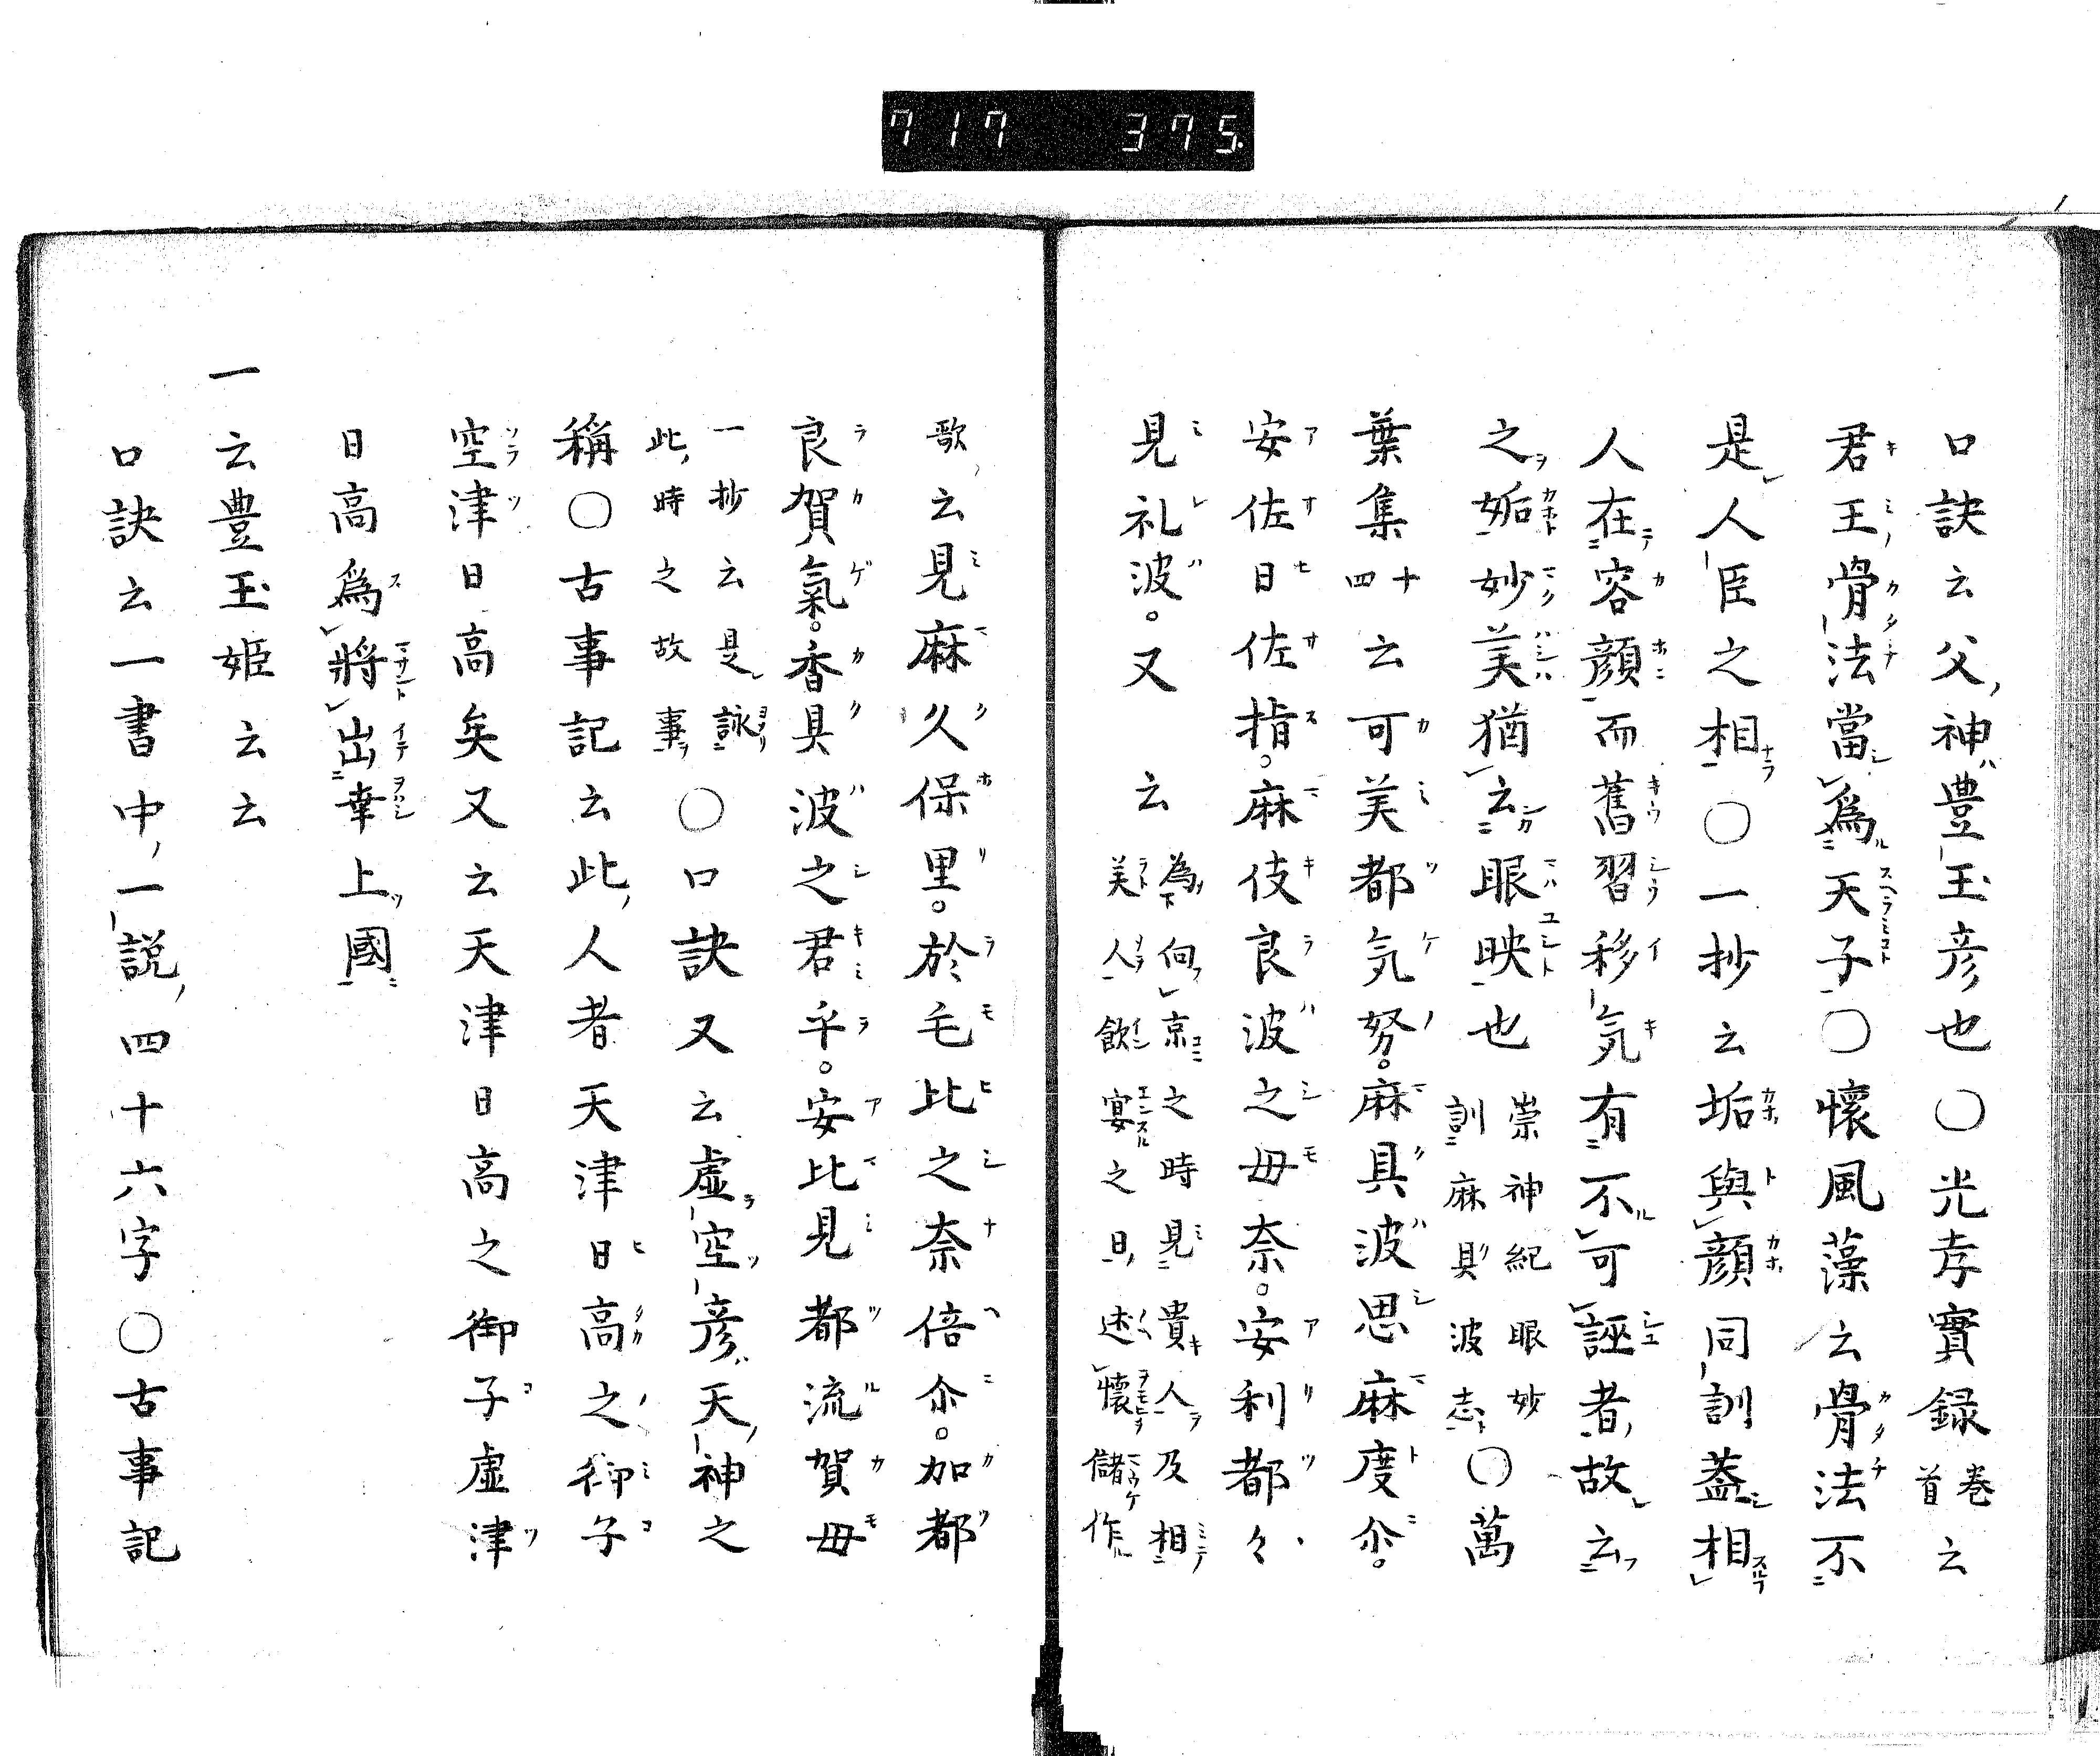 717 375.
口訣云父神豊玉彦也〇光孝實録巻首云
君王骨法當為天子〇懐風藻云骨法不
是人臣之相〇一抄云垢與顔同訓蓋相
人在容顔而舊習移気有不可誣者故云
之姤妙美猶云眼映也崇神紀眼妙訓麻具波志〇萬
葉集十四云可美都気努。麻具波思麻度尒。
安佐日佐指。麻伎良波之毋奈。安利都々
見礼波。又云為向京之時見貴人及相美人飲宴之日述懐儲作
歌云見麻久保里。於毛比之奈倍尒。加都
良賀氣。香具波之君乎。安比見都流賀毋
一抄云是詠此時之故事〇口訣又云虚空彦天神之
稱〇古事記云此人者天津日高之御子
空津日高矣又云天津日高之御子虚津
日高為將出幸上國
一云豊玉姫云云
口訣云一書中一説四十六字〇古事記